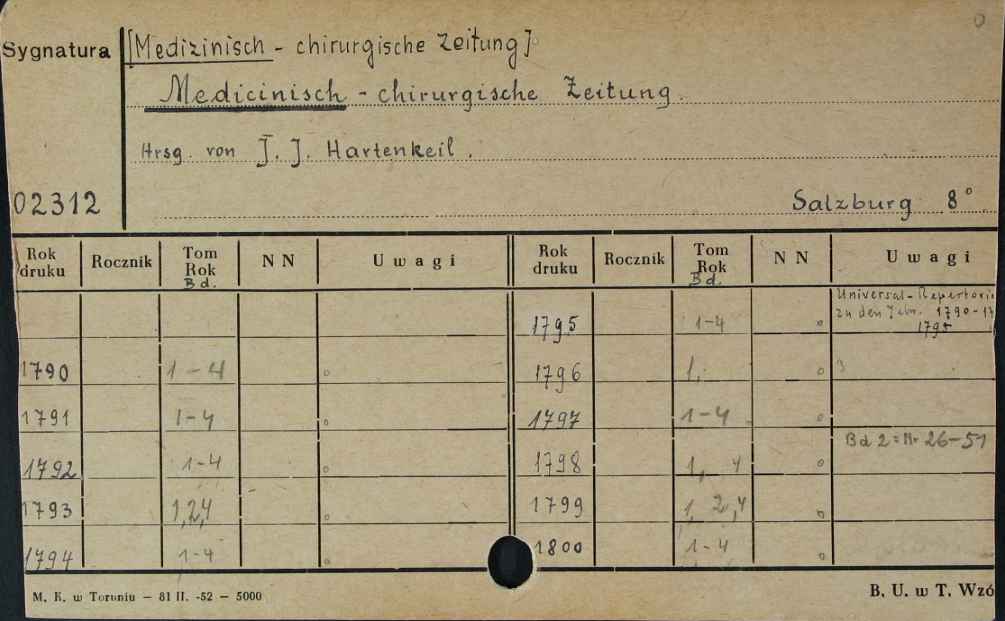 Sygnatura [Medizinisch - chirurgische Zeitung]
Medicinisch - chirurgische Zeitung.
Hrsg. von J. J. Hartenkeil.
02312 Salzburg 8°
Rok druku Rocznik Tom Rok Bd. NN Uwagi Rok druku Rocznik Tom Rok Bd. NN Uwagi
1795 1-4 Universal-Repertori
zu den 1790-17
1795
1790 1-4 1796 1, 3
1791 1-4 1797 1-4
Bd 2 = Nr 26-51
1792 1-4 1798 1, 4
1793 1,2,4 1799 1, 2,4
1794 1-4 1800 1-4
M. K. w Toruniu — 81 II. -52 — 5000 B. U. w T. Wzó